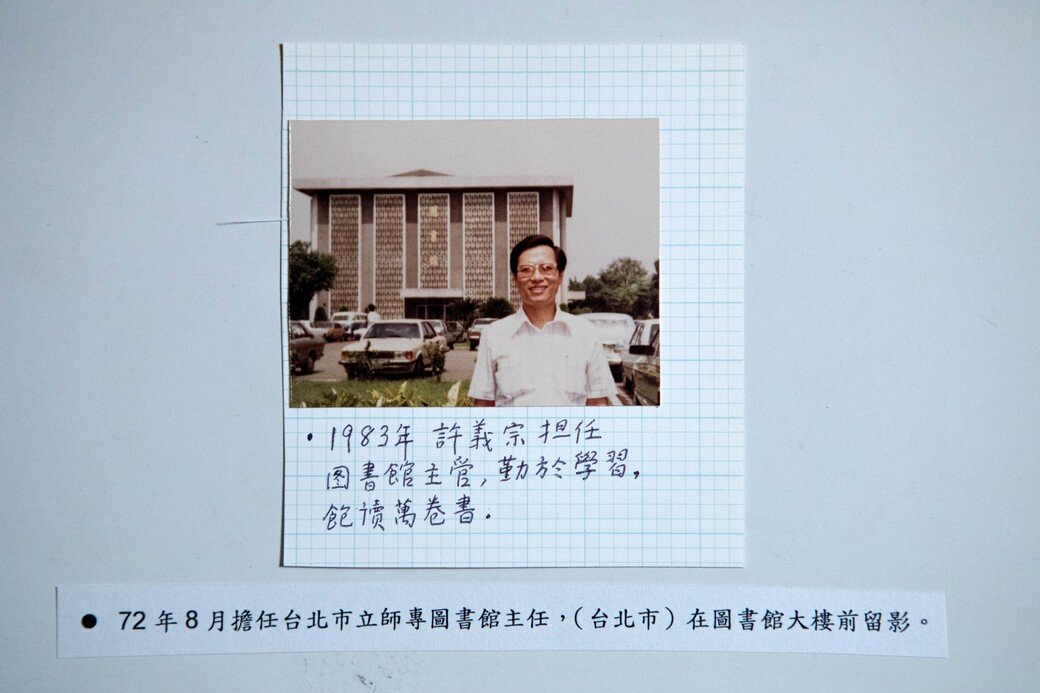 圖書館
• 1983年 許義宗担任
图書館主管,勤於學習,
飽讀萬卷書.
● 72 年 8 月擔任台北市立師專圖書館主任,(台北市)在圖書館大樓前留影。